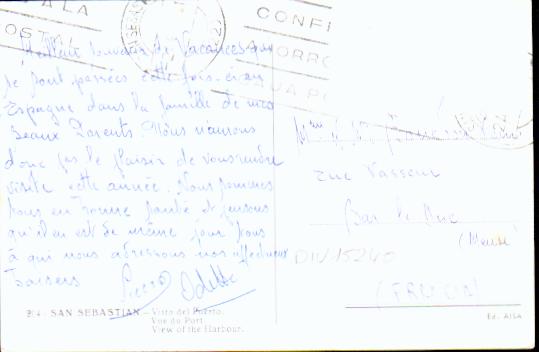 CONFI
OSTAL
AHORRO
CAJA PO
Meilleur Souvenir de Vacances qui
se sont passées cette fois-ci en
Espagne dans la famille de mes
Beaux Parents. Nous n'aurons
donc pas le plaisir de vous rendre
visite cette année. Nous sommes
tous en bonne santé et pensons
qu'il en est de même pour vous
à qui nous adressons nos affectueux
baisers
Pierre Odette
rue Vasseur
Bar le Duc
(Meuse)
DIV-15240
(FRANCIA)
204 - SAN SEBASTIAN - Vista del Puerto.
Vue du Port.
View of the Harbour.
Ed. AISA